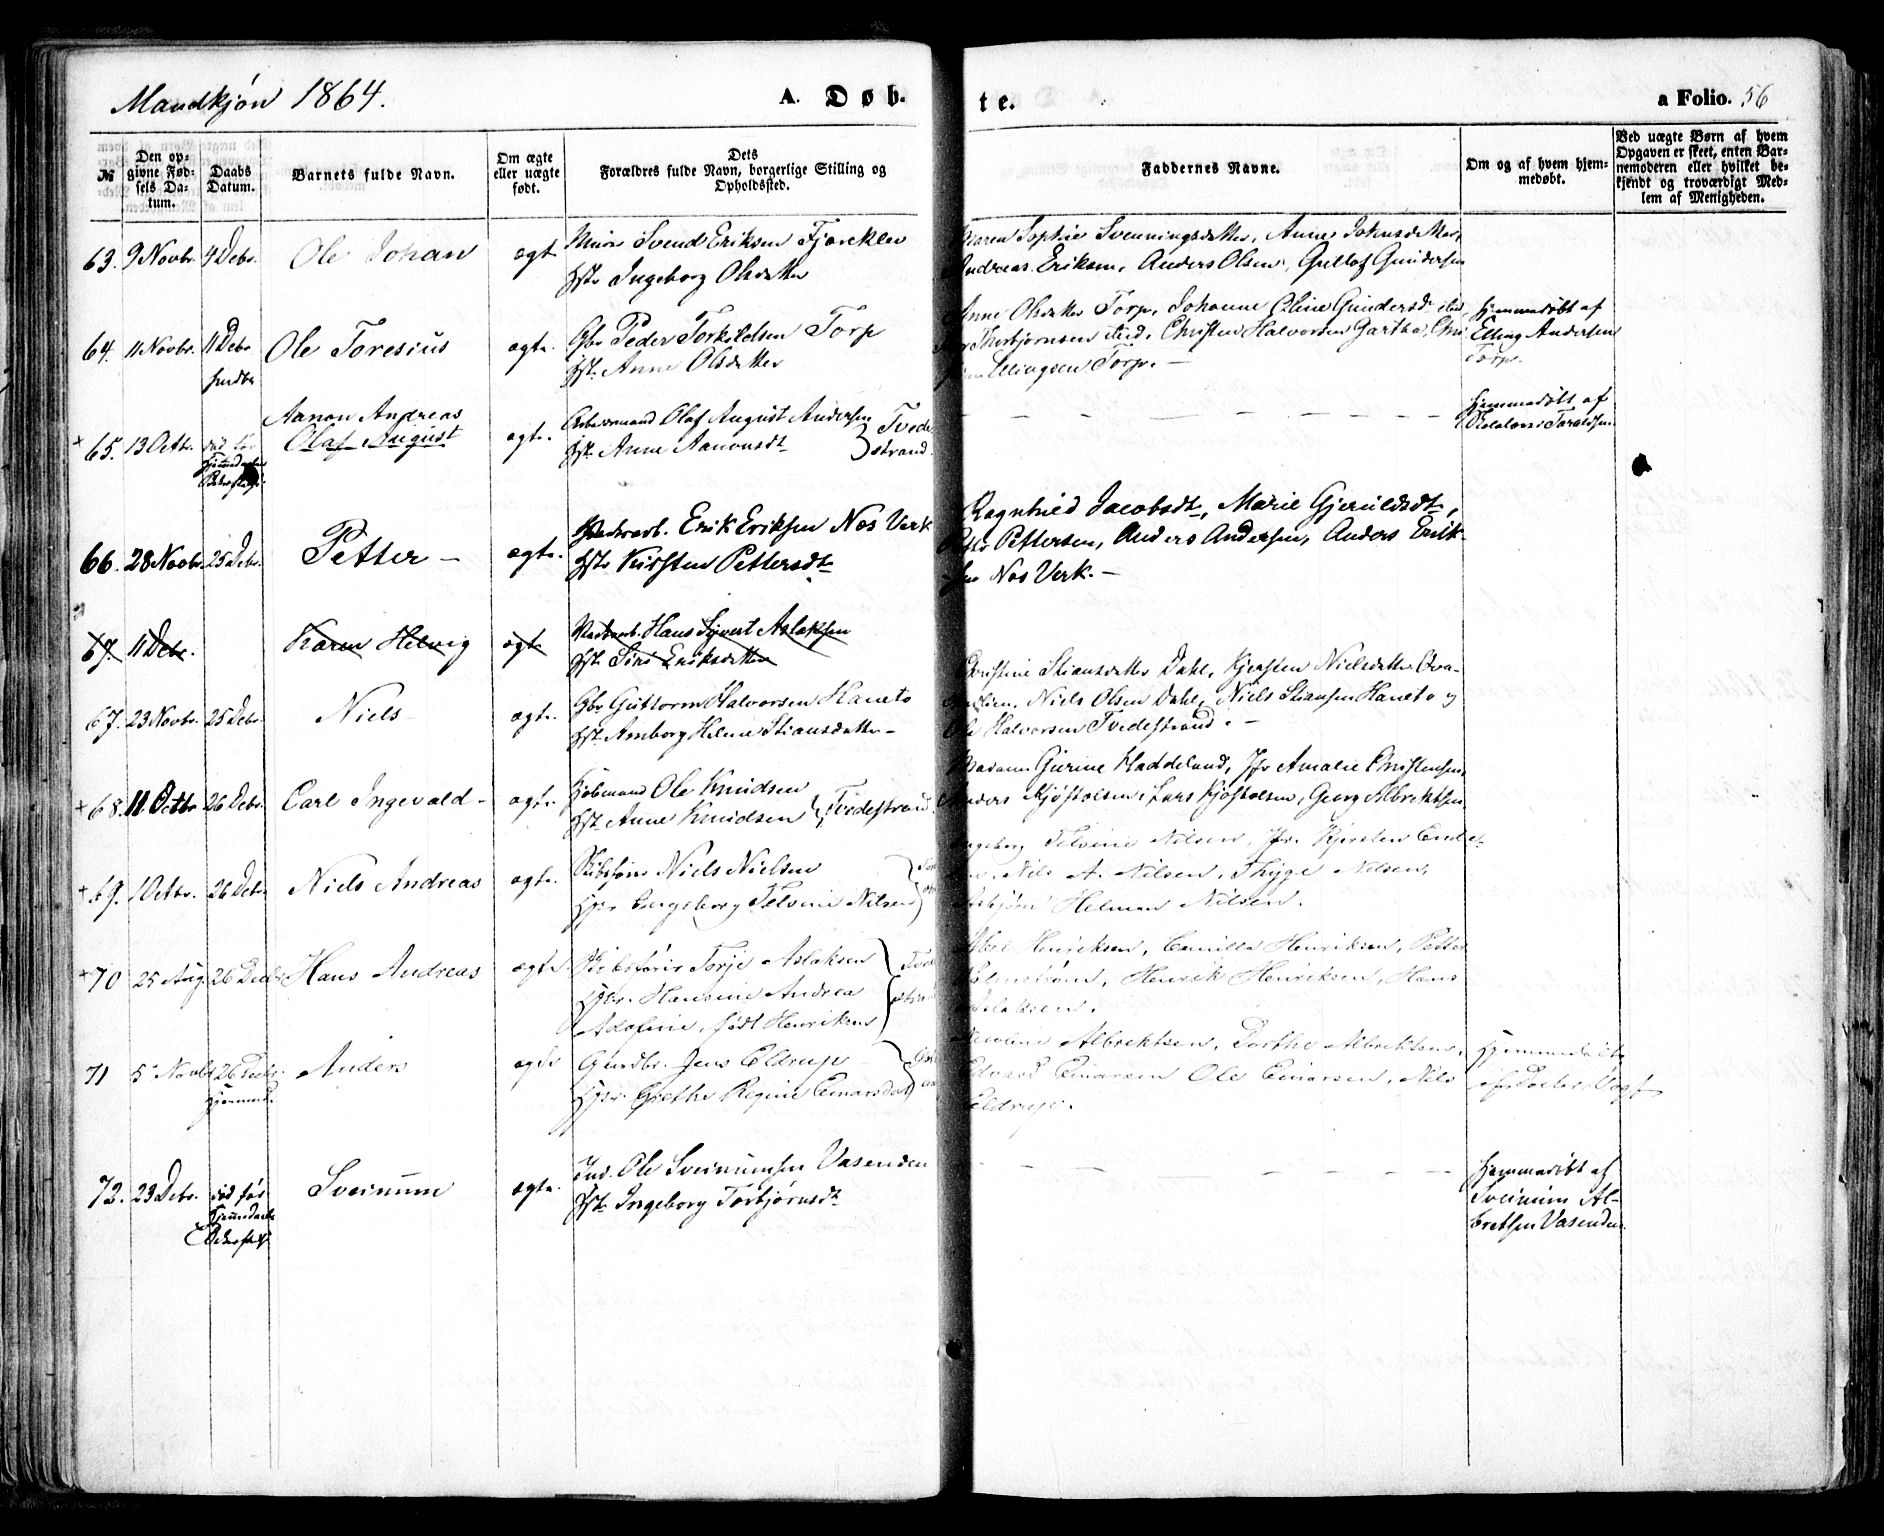 Mandkjøn 1864.
A. Døb-
te.
a Folio. 56
№
Den op-
givne Fød-
sels Da-
tum.
Daabs
Datum.
Barnets fulde Navn.
Om ægte
eller uægte
født.
Dets
Forældres fulde Navn, borgerlige Stilling og
Opholdssted.
Faddernes Navne.
Om og af hvem hjem-
medøbt.
Ved uægte Børn af hvem
Opgaven er skeet, enten Bar-
nemoderen eller hvilket be-
kjendt og troværdigt Med-
lem af Menigheden.
63. 9 Novbr. 4 Debr. Ole Johan ægt.
Svend Eriksen
Hst. Ingeborg Olsdatter
Maren Sophie Svenningsdatter, Anne Johnsdatter,
Andreas Eriksen, Anders Olsen, Gullof Gundersen
64. 11 Novbr. 11 Debr. Ole Toresius ægte.
Gbr Peder Torkildsen Torp
Hst. Anne Olsdatter
Anne Olsdatter Torp, Johanne Oline Gundersd.
Thorbjørnsen ibid, Christen Halvorsen Gartha,
Ellingsen Torp. —
Hjemmedøbt af
Elling Andersen
Torp.
+ 65. 13 Octbr. død før
Hjemmedaabs
Bekræftelse
Aanon Andreas
Olaf August
ægte.
Arbeidsmand Olaf August Andersen
Hst. Anne Aanonsdt
Tvede
strand.
— — — — — — —
Hjemmedøbt af
Taraldsen
66. 28 Novbr. 25 Debr. Petter — ægte.
Erik Eriksen Nes Verk
Hst. Kirsten Pettersdt
Ragnhild Jacobsdt, Marie Gjeruldsdt,
Pettersen, Anders Andersen, Anders Erik-
sen Nes Verk. —
67. 11 Debr. Karen Helvig ægte
Hans Syvert Aslaksen
Hst. Siri Eriksdatter
67. 23 Novbr. 25 Debr. Niels ægte.
Gbr Guttorm Halvorsen Haneto
Hst. Amborg Helene Stiansdatter —
Christine Stiansdatter Dahl, Kjersten Nielsdatter
Niels Olsen Dahl, Niels Stiansen Haneto og
Ole Halvorsen Tvedestrand. —
+ 68. 11 Octbr 26 Debr. Carl Ingevald — ægte.
Kjøbmand Ole Knudsen
Hst. Anne Knudsen
Tvedestrand
Madam Gurine Haddeland, Jfr Amalie Christensen,
Anders Kjøstolsen, Lars Kjøstolsen, Georg Albrektsen
+ 69. 1 Octbr. 26 Debr. Niels Andreas ægte.
Skibsfører Niels Nielsen
Hst. Ingeborg Telvine Nilsen
Ingeborg Telvine Nilsen, Jfr. Kjersten
Niels A. Nilsen, Thyge Nilsen,
Helman Nilsen.
+ 70 25 Aug. 26 Decbr Hans Andreas ægte
Skibsfører Terje Aslaksen
Hst. Hansine Andrea
Adofine, født Henriksen
Henriksen, Camilla Henriksen, Petter
Henrik Henriksen, Hans
Aslaksen.
71 5 Novbr 26 Decbr.
Hjemmed.
Anders ægte
Gaardbr. Jens Eldrup
Hst. Grethe Regine Einarsdat
Albrektsen, Dorthe Albrektsen,
Edvard Einarsen Ole Einarsen, Nils
Eldrup.
Hjemmedøbt
af Doctor Vogt
72. 23 Debr. død før
Hjemmedaabs
Bekræftelse
Sveinum ægte.
Ind. Ole Sveinumsen Vasenden
Hst. Ingeborg Torbjørnsdt
— — — — — —
Hjemmedøbt af
Sveinum Al-
bretsen Vasenden.